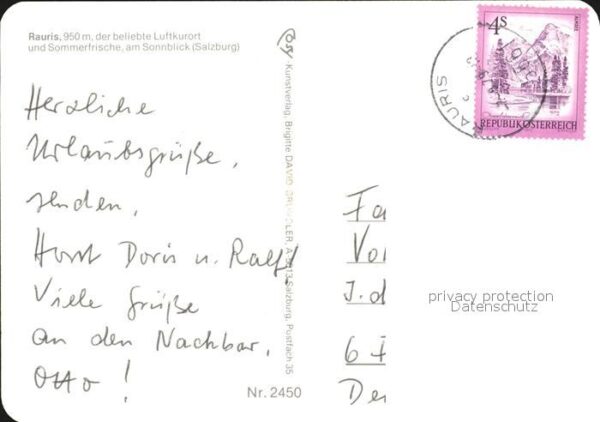 Rauris, 950 m, der beliebte Luftkurort
und Sommerfrische, am Sonnblick (Salzburg)
Herzliche
Urlaubsgrüße,
senden,
Horst Doris u. Ralf!
Viele Grüße
an den Nachbar,
Otto!
Nr. 2450
Cosy-Kunstverlag, Brigitte DAVID A-5013 Salzburg, Postfach 35
4 S
ALMSEE
REPUBLIK ÖSTERREICH
RAURIS
Fa
Vo
J.d
privacy protection
Datenschutz
6
De